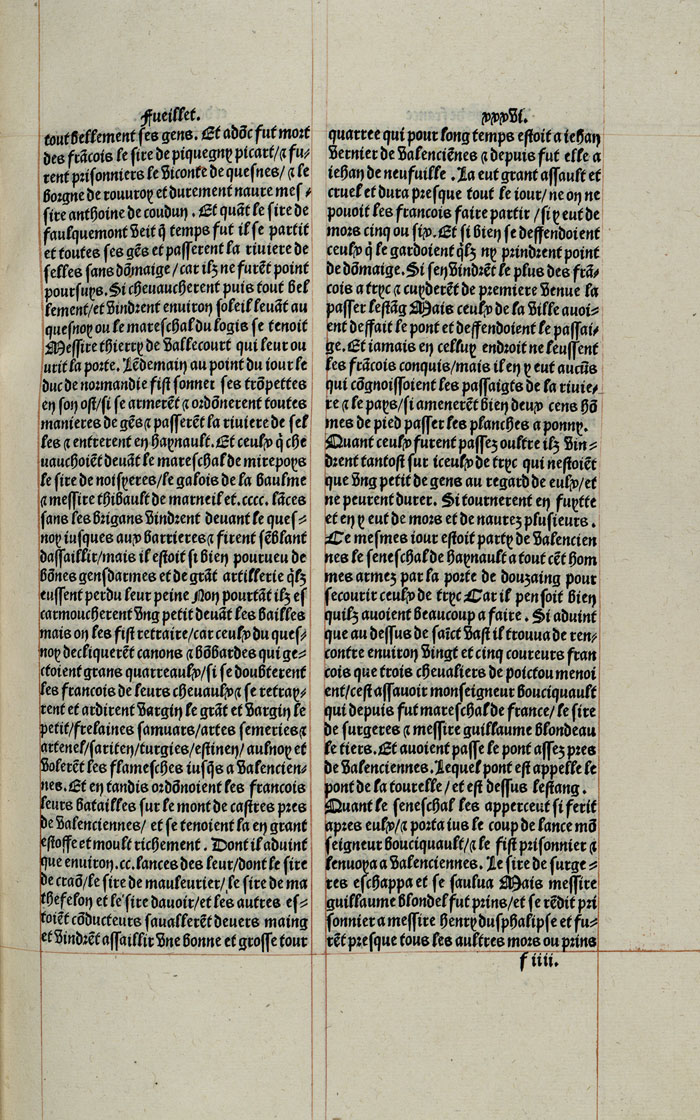 Fueillet.
tout bellement ses gens. Et adōc fut mort
des frācois le sire de piquegny picart/⁊ fu-
rent prisonniers le viconte de quesnes/ ⁊ le
borgne de rouuroy et durement naure mes-
sire anthoine de coudun. Et quāt le sire de
faulquemont veit q̄ temps fut il se partit
et toutes ses gēs et passerent la riuiere de
selles sans dōmaige/car ilz ne furēt point
poursuys. Si cheuaucherent puis tout bel
lement/et vindrent enuiron soleil leuāt au
quesnoy ou le mareschal du logis se tenoit
Messire thierry de vallecourt qui leur ou
urit la porte. Lēdemain au point du iour le
duc de normandie fist sonner ses trōpettes
en son ost/si se armerēt ⁊ ordōnerent toutes
manieres de gēs ⁊ passerēt la riuiere de sel
les ⁊ entrerent en haynault. Et ceulx q̄ che
uauchoiēt deuāt le mareschal de mirepoys
le sire de noisyeres/le galois de la baulme
⁊ messire thibault de marneil et.cccc. lāces
sans les brigans vindrent deuant le ques-
noy iusques aux barrieres ⁊ firent sēblant
dassaillir/mais il estoit si bien pourueu de
bōnes gensdarmes et de grāt artillerie q̄lz
eussent perdu leur peine Non pourtāt ilz es
carmoucherent vng petit deuāt les bailles
mais on les fist retraire/car ceulx du ques-
noy decliquerēt canons ⁊ bōbardes qui ge-
ctoient grans quarreaulx/si se doubterent
les francois de leurs cheuaulx ⁊ se retray-
rent et ardirent vargin le grāt et vargin le
petit/frelaines samuars/artes semeries ⁊
artenel/sariten/turgies/estinen/ aulnoy et
volerēt les flamesches iusq̄s a valencien-
nes. Et en tandis ordōnoient les francois
leurs batailles sur le mont de castres pres
de valenciennes/ et se tenoient la en grant
estoffe et moult richement. Dont il aduint
que enuiron.cc.lances des leur/dont le sire
de craō/le sire de mauleurier/ le sire de ma
thefelon et le sire dauoir/et les autres es-
toiēt cōducteurs sauallerēt deuers maing
et vindrēt assaillir vne bonne et grosse tour
xxxvi.
quarree qui pour long temps estoit a iehan
vernier de valenciēnes ⁊ depuis fut elle a
iehan de neufuille. La eut grant assault et
cruel et dura presque tout le iour/ ne on ne
pouoit les francois faire partir /si y eut de
mors cinq ou six. Et si bien se deffendoient
ceulx q̄ le gardoient q̄lz ny prindrent point
de dōmaige. Si sen vindrēt le plus des frā-
cois a tryc ⁊ cuyderēt de premiere venue la
passer lestāg Mais ceulx de la ville auoi-
ent deffait le pont et deffendoient le passai-
ge. Et iamais en celluy endroit ne leussent
les frācois conquis/mais il en y eut aucūs
qui cōgnoissoient les passaigts de la riuie-
re ⁊ le pays/si amenerēt bien deux cens hō
mes de pied passer les planches a ponny.
Quant ceulx furent passez oultre ilz vin-
drent tantost sur iceulx de tryc qui nestoiēt
que vng petit de gens au regard de eulx/et
ne peurent durer. Si tournerent en fuytte
et en y eut de mors et de naurez plusieurs.
Ce mesmes iour estoit party de valencien
nes le seneschal de haynault a tout cēt hom
mes armez par la porte de douzaing pour
secourir ceulx de tryc Car il pensoit bien
quilz auoient beaucoup a faire. Si aduint
que au dessus de saīct vast il trouua de ren-
contre enuiron vingt et cinq coureurs fran
cois que trois cheualiers de poictou menoi
ent/cest assauoir monseigneur bouciquault
qui depuis fut mareschal de france/ le sire
de surgeres ⁊ messire guillaume blondeau
le tiers. Et auoient passe le pont assez pres
de valenciennes. Lequel pont est appelle le
pont de la tourelle / et est dessus lestang.
Quant le seneschal les apperceut si ferit
apres eulx/⁊ porta ius le coup de lance mō
seigneur bouciquault/⁊ le fist prisonnier ⁊
lenuoya a valenciennes. Le sire de surge-
res eschappa et se saulua Mais messire
guillaume blondel fut prins/et se rēdit pri
sonnier a messire henry dusphalipse et fu-
rēt presque tous les aultres mors ou prins
f iiii.